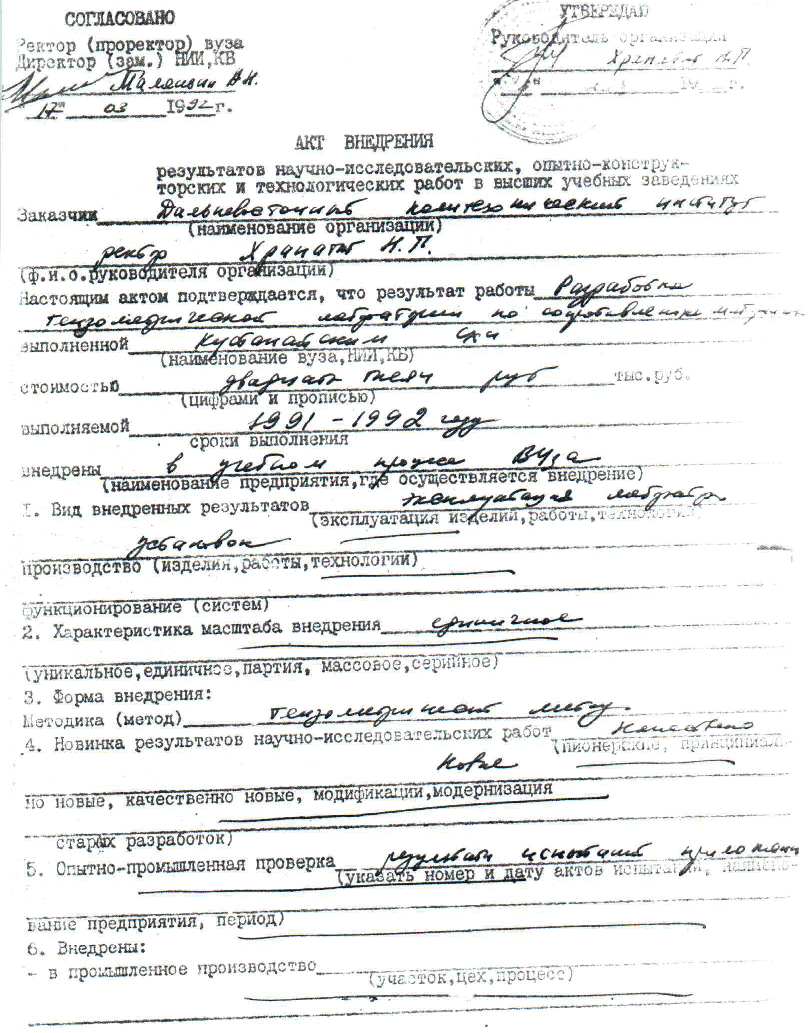 СОГЛАСОВАНО
Ректор (проректор) вуза
Директор (зам.) НИИ,КБ
17" 03 1992г.
УТВЕРЖДАЮ
Руководитель организации
Храпатый Н.П.
АКТ ВНЕДРЕНИЯ
результатов научно-исследовательских, опытно-конструк-
торских и технологических работ в высших учебных заведениях
Заказчик Дальневосточный политехнический институт
(наименование организации)
ректор Храпатый Н.П.
(ф.и.о.руководителя организации)
Настоящим актом подтверждается, что результат работы Разработка
тензометрической лаборатории по сопротивлению
выполненной Кустанайским схи
(наименование вуза,НИИ,КБ)
стоимостью двадцать тысяч руб тыс.руб.
(цифрами и прописью)
выполняемой 1991-1992 году
сроки выполнения
внедрены в учебном процессе ВУЗа
(наименование предприятия,где осуществляется внедрение)
I. Вид внедренных результатов эксплуатация лаборатор.
(эксплуатация изделий,работы,технологии)
установок
производство (изделия,работы,технологии)
функционирование (систем)
2. Характеристика масштаба внедрения единичное
(уникальное,единичное,партия, массовое,серийное)
3. Форма внедрения:
Методика (метод) тензометрический метод.
4. Новинка результатов научно-исследовательских работ качественно
(пионерские, принципиаль-
новые
но новые, качественно новые, модификации,модернизация
старых разработок)
5. Опытно-промышленная проверка результаты испытаний приложены
(указать номер и дату актов испытаний, наимено-
вание предприятия, период)
6. Внедрены:
- в промышленное производство
(участок,цех,процесс)